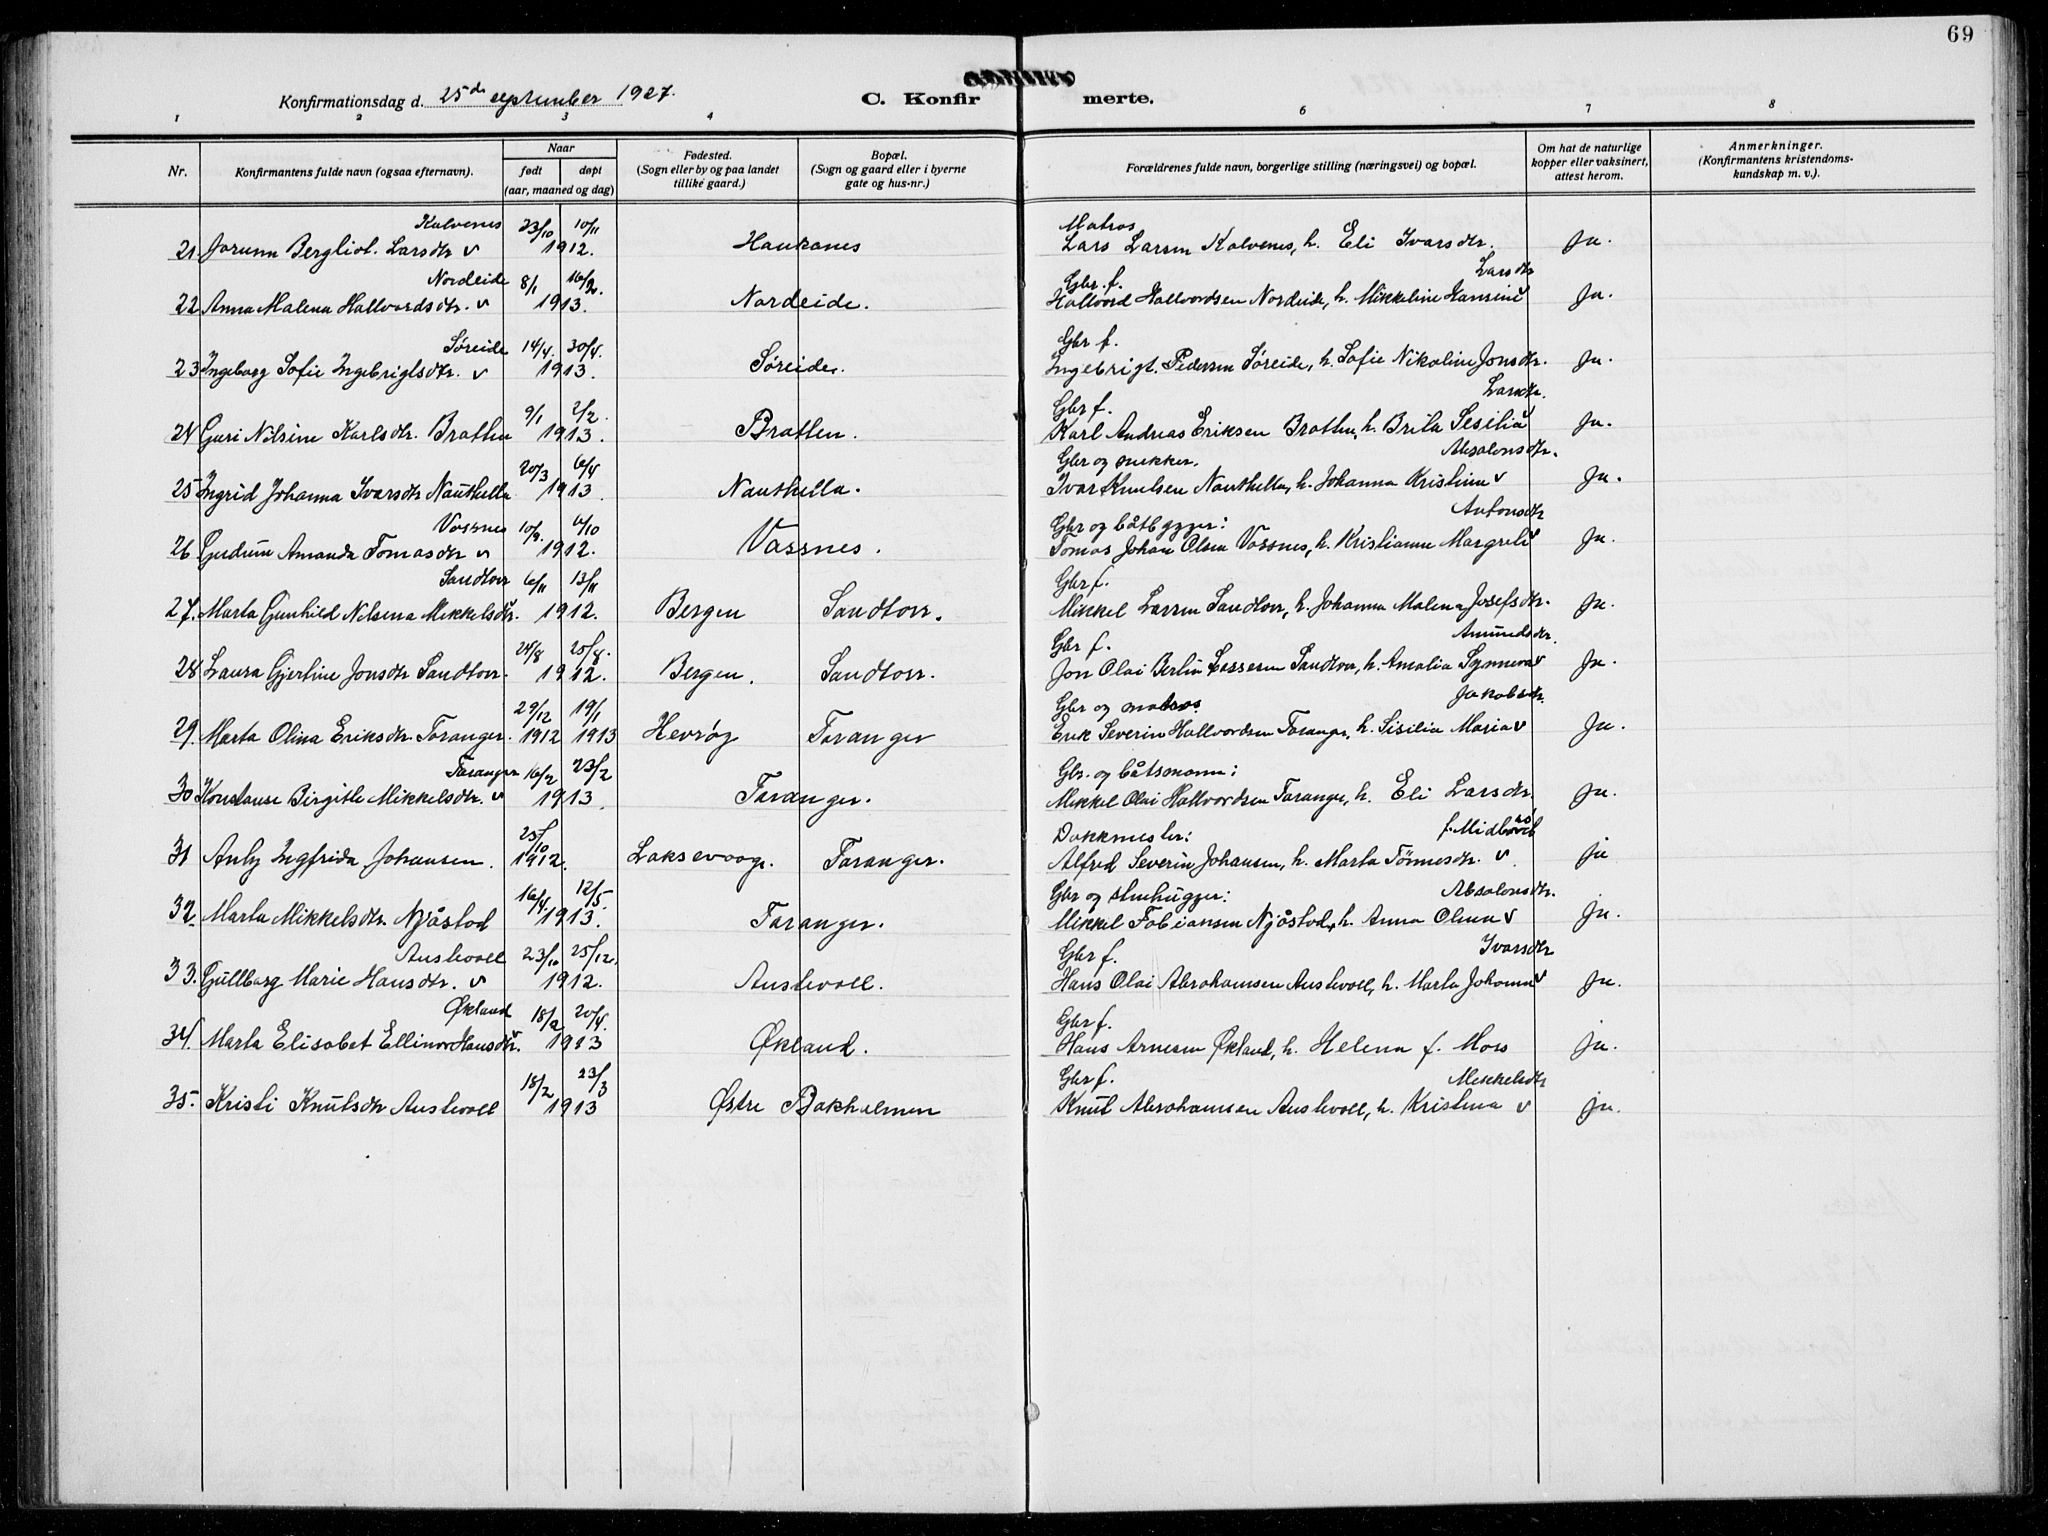 69
Konfirmationsdag d. 25de september 1927.
C. Konfirmerte.
1 2 3 4 6 7 8
Nr. Konfirmantens fulde navn (ogsaa efternavn). Naar født døpt (aar, maaned og dag) Fødested. (Sogn eller by og paa landet tillike gaard.) Bopæl. (Sogn og gaard eller i byerne gate og hus-nr.) Forældrenes fulde navn, borgerlige stilling (næringsvei) og bopæl. Om hat de naturlige kopper eller vaksinert, attest herom. Anmerkninger. (Konfirmantens kristendomskundskap m. v.).
Kalvenes 23/10 10/11 Matros
21 Jorunn Bergliot. Larsdtr v 1912. Haukanes Lars Larsen Kalvenes, h. Eli Ivarsdtr. Ja.
Nordeide 8/1 16/2. Gbr. f. Larsdtr
22 Anna Malena Hallvardsdtr. v 1913. Nordeide. Hallvord Hallvordsen Nordeide, h. Mikkeline Hansine v Ja.
Søreide 14/4. 30/4. Gbr f.
23 Ingeborg Sofie Ingebrigtsdtr. v 1913. Søreide. Ingebrigt. Pedersen Søreide, h. Sofie Nikoline Jonsdtr. Ja.
9/1 2/2. Gbr f. Larsdtr.
24 Guri Nilsine Karlsdtr. Bratten 1913. Bratten. Karl Andreas Eriksen Bratten, h. Brita Sesilia v Ja.
20/3 6/4 Gbr og snekker. Absalonsdtr.
25 Ingrid Johanna Ivarsdtr Nauthella. 1913. Nauthella. Ivar Knutsen Nauthella, h. Johanna Kristina v Ja.
Vassnes 10/9. 6/10 Gbr og båtbygger: Antonsdtr
26 Gudrun Amanda Tomasdtr v 1912. Vassnes. Tomas Johan Olsen Vassnes, h. Kristianne Margrete v Ja.
Sandtorv 6/11 13/11 Gbr f.
27. Marta Gunhild Nilsena Mikkelsdtr. 1912. Bergen Sandtorv. Mikkel Larsen Sandtorv, h. Johanna Malena Josefsdtr. Ja.
24/8 25/8. Gbr f. Amundsdtr.
28 Laura Gjertine Jonsdtr Sandtorv. 1912. Bergen. Sandtorv. Jon Olai Berlin Sandtorv, h. Amalia Synneva v Ja.
29/12 19/1 Gbr og matros Jakobsdtr.
29. Marta Olina Eriksdtr. Taranger. 1912 1913 Hevrøy Taranger Erik Severin Hallvordsen Taranger, h. Sisilia Maria v Ja.
Taranger 16/2 23/2 Gbr. og båtsmann:
30 Konstanse Birgitte Mikkelsdtr. v 1913. Taranger. Mikkel Olai Hallvordsen Taranger, h. Eli Larsdtr. Ja.
25/10 Dokkmester:
31 Anby Ingfrida Johansen. 1912. Laksevaag. Taranger. Alfred Severin Johansen, h. Marta Tönnesdtr. v. ja
16/4. 12/5. Gbr og stenhugger: Absalonsdtr.
32 Marta Mikkelsdtr. Njåstad 1913. Taranger. Mikkel Fabiansen Njåstad, h. Anna Olena v Ja.
Austevoll 23/10 25/12. Gbr f. Ivarsdtr
33. Gullborg Marie Hansdtr. v 1912. Austevoll. Hans Olai Abrahamsen Austevoll, h. Marta Johanna v Ja.
Økland 18/2 20/4. Gbr f.
34. Marta Elisabet Ellinor Hansdtr. 1913 Økland. Hans Arnesen Økland, h. Helena f. Moss Ja.
18/2 23/3 Gbr f. Mikkelsdtr
35. Kristi Knutsdtr Austevoll 1913 Østre Bakholmen Knut Abrahamsen Austevoll, h. Kristina v ja.